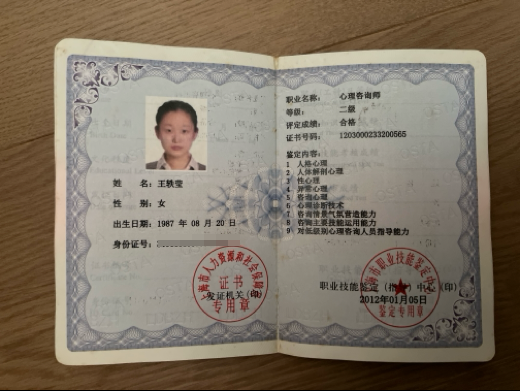 姓    名：王轶莹
性    别：女
出生日期：1987 年 08 月 20 日
身份证号：
上海市人力资源和社会保障局
证书
专用章
发证机关（印）
职业名称：心理咨询师
等级：二级
评定成绩：合格
证书号码：1203000233200565
鉴定内容：
1 人格心理
2 人体解剖心理
3 性心理
4 异常心理
5 咨询心理
6 心理诊断技术
7 咨询情景气氛营造能力
8 咨询主要技能运用能力
9 对低级别心理咨询人员指导能力
职业技能鉴定（指导）中心（印）
2012年01月05日
上海市职业技能鉴定中心
鉴定专用章